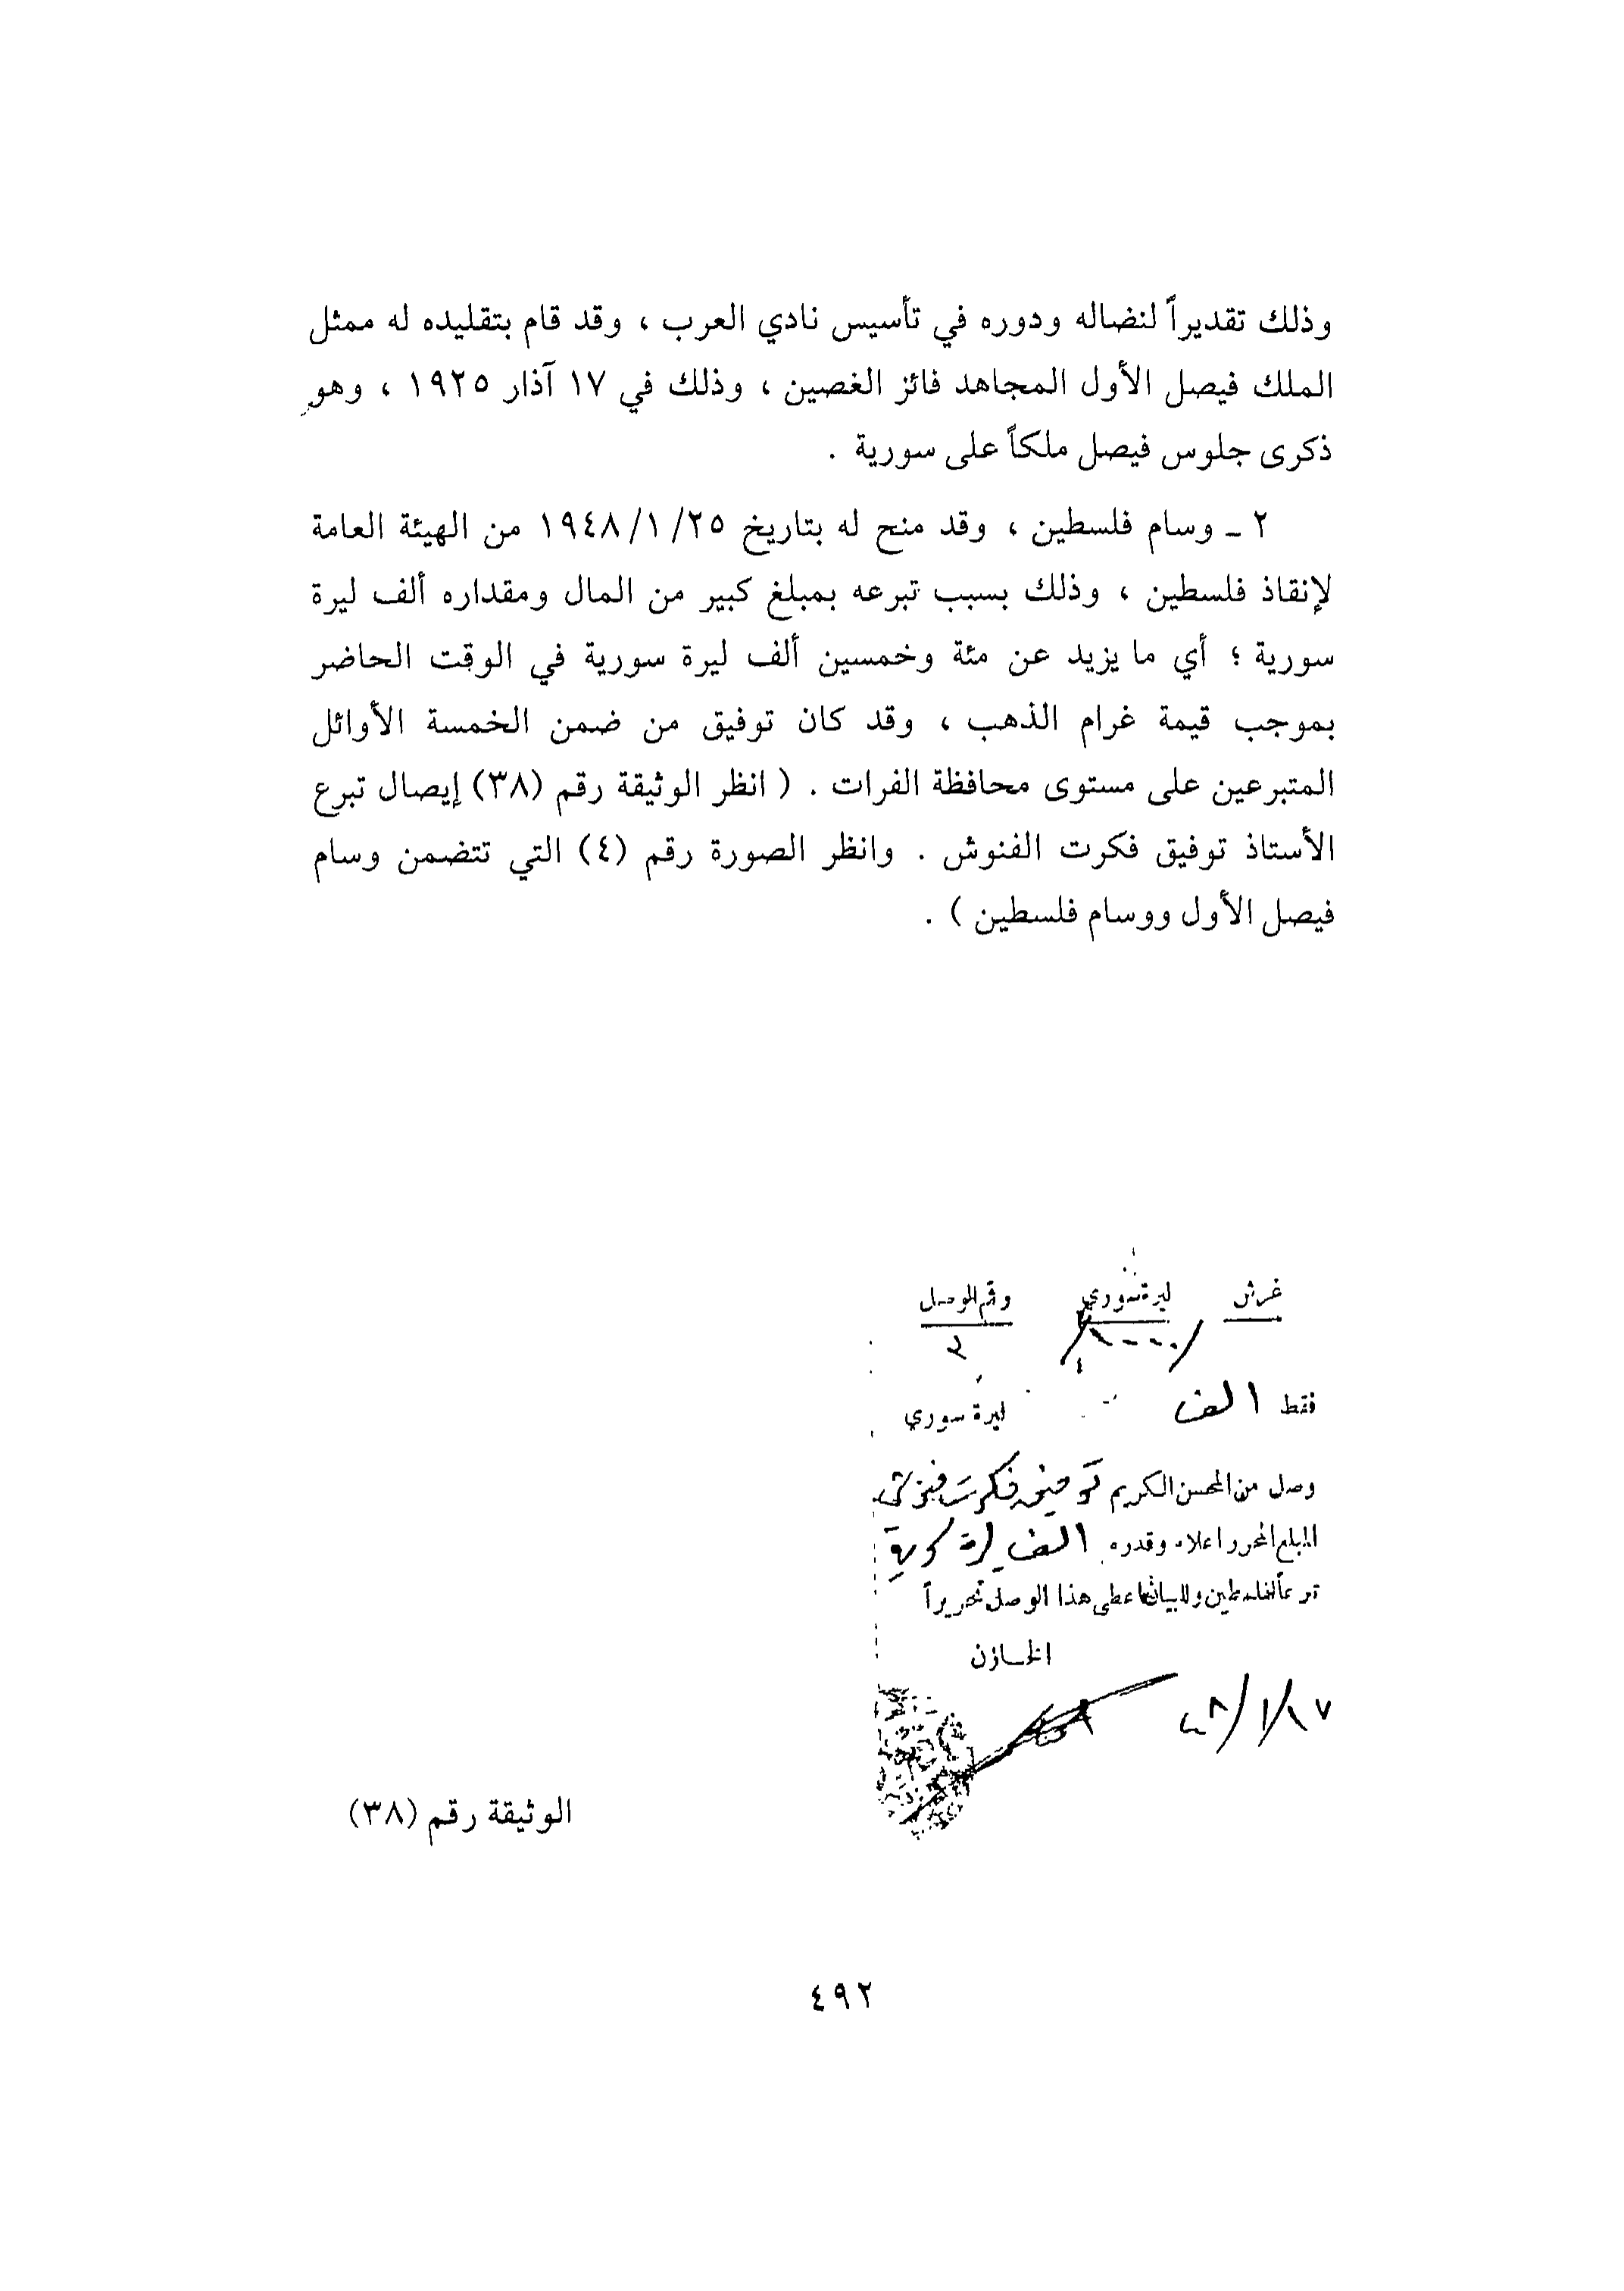 وذلك تقديراً لنضاله ودوره في تأسيس نادي العرب ، وقد قام بتقليده له ممثل
الملك فيصل الأول المجاهد فائز الغصين ، وذلك في ١٧ آذار ١٩٢٥ ، وهو
ذكرى جلوس فيصل ملكاً على سورية .
٢ ـ وسام فلسطين ، وقد منح له بتاريخ ١٩٤٨/١/٢٥ من الهيئة العامة
لإنقاذ فلسطين ، وذلك بسبب تبرعه بمبلغ كبير من المال ومقداره ألف ليرة
سورية ؛ أي ما يزيد عن مئة وخمسين ألف ليرة سورية في الوقت الحاضر
بموجب قيمة غرام الذهب ، وقد كان توفيق من ضمن الخمسة الأوائل
المتبرعين على مستوى محافظة الفرات . ( انظر الوثيقة رقم (٣٨) إيصال تبرع
الأستاذ توفيق فكرت الفنوش . وانظر الصورة رقم (٤) التي تتضمن وسام
فيصل الأول ووسام فلسطين ) .
غرش ليرة سوري رقم الوصل
٢
فقط الف ليرة سوري
وصل من المحسن الكريم توفيق فكرت فنوش
المبلغ المحرر اعلاه وقدره الف ليرة سورية
تبرعاً لفلسطين وللبيان اعطي هذا الوصل تحريراً
الخازن
الوثيقة رقم (٣٨)
٤٩٢